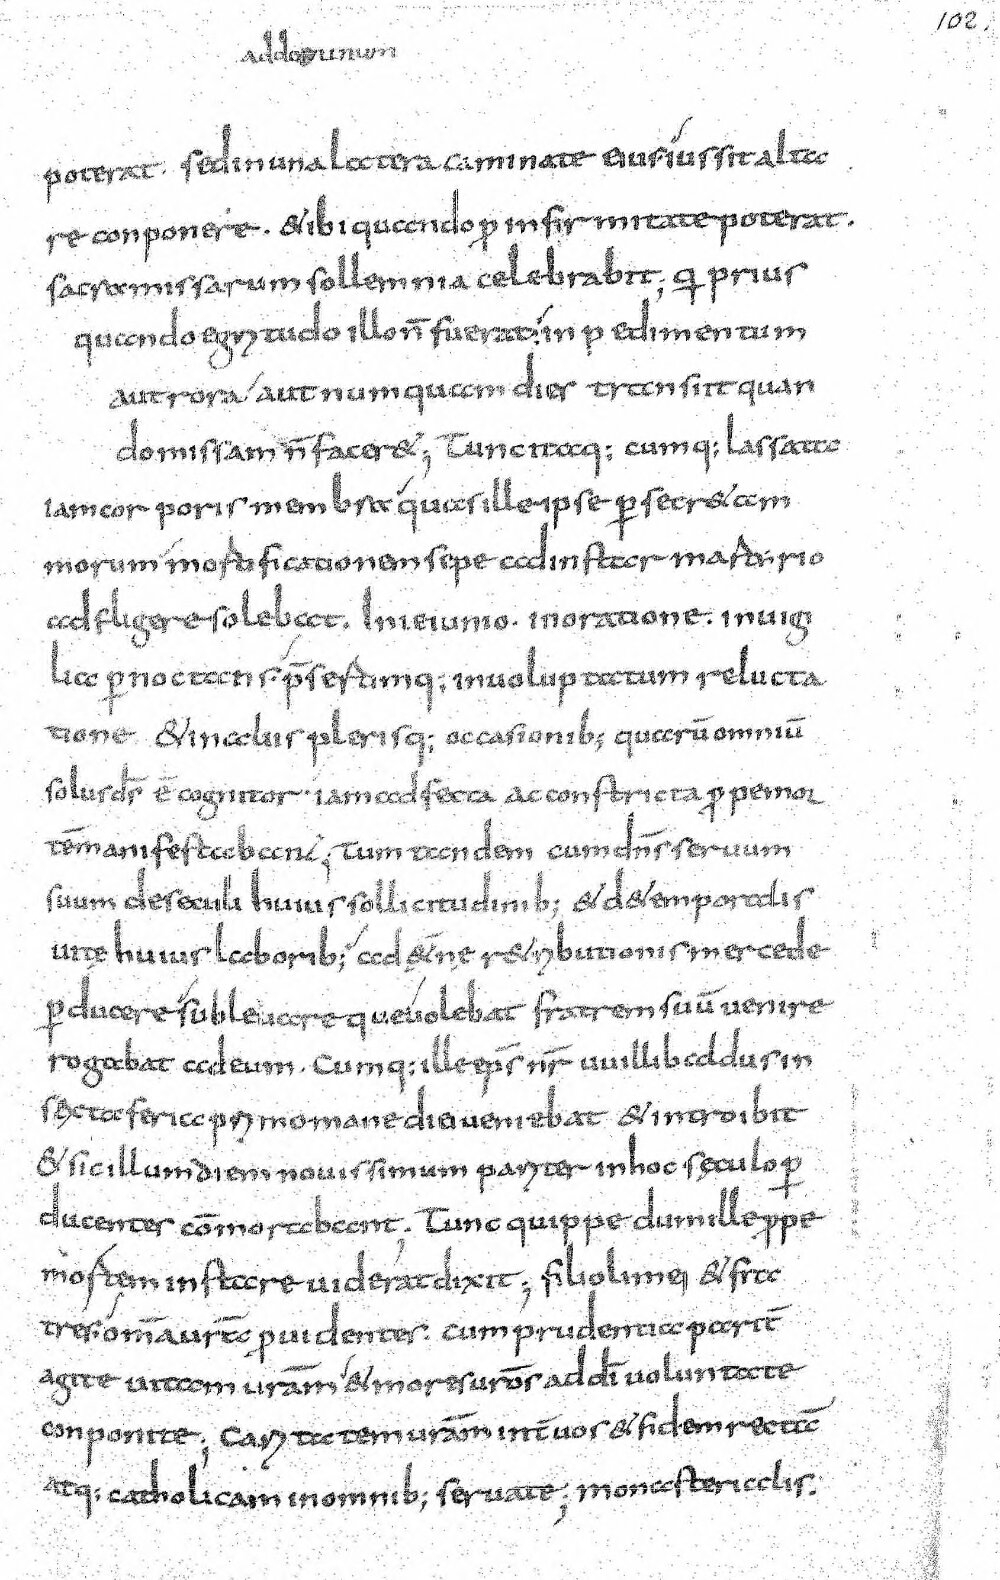 102.
addorunum
poterat. sed in una latera caminate eius iussit alta
re conponere. & ibi quando ꝑ infirmitate poterat.
sacra missarum sollemnia celebrabit; qi prius
quando egrytudo illi non̄ fuerat in pedimentum
aut rora aut numquam dies transiit quan
do missam n̄ facer&; Tunc itaq; cumq; lassata
iam corporis membra quas ille ipse ꝑ secr&am
morum mortificationem sepe ad instar martyrio
adfligere solebat. In ieiunio. in oratione. in uigi
lia ꝑnoctans. p̄sertimq; in uoluptatum relucta
tione & in aliis plerisq; occasionib; quarū omniū
solus ds̄ ē cognitor iam adfecta ac constricta ꝓpe mor
tē manifestabant; Tum tandem cum dn̄s seruum
suum de seculi huius sollicitudinib; & de temporalis
uite huius laborib; ad &̄ne r&rybutionis mercede
ꝑducere subleuare que uolebat fratrem suū uenire
rogabat ad eum. Cumq; ille ep̄s nr̄ uuillibaldus in
sexta feria prymo mane die ueniebat & introibit
& sic illum diem nouissimum paryter in hoc sęculo ꝑ
ducentes cōmorabant; Tunc quippe dum ille ꝓpe
mortem instare uiderat dixit; filioli mei & fra
tres. om̄a ur̄a ꝓuidentes. cum prudentia parit̄
agite uitam ur̄am & mores ur̄os ad dī uoluntate
conponite; Carytatem ur̄am int̄ uos & fidem recta
atq; catholicam in omnib; seruate; monasterialis.